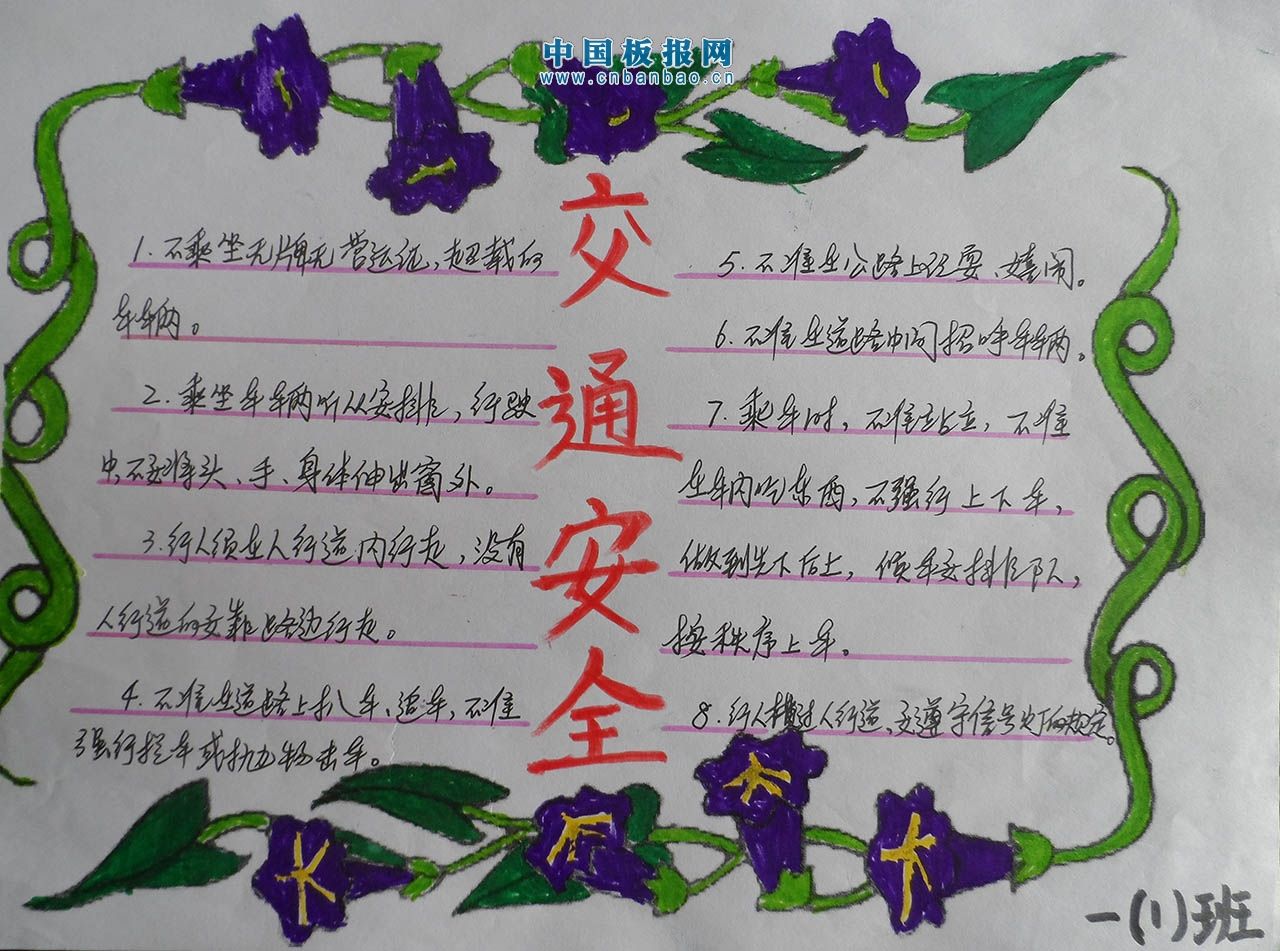 中国板报网
www.cnbanbao.cn
交通安全
1.不乘坐无牌无营运证、超载的
车辆。
2.乘坐车车辆听从安排,行驶
中不要将头、手、身体伸出窗外。
3.行人须在人行道内行走,没有
人行道的要靠路边行走。
4.不准在道路上扒车、追车,不准
强行拦车或抛物击车。
5.不准在公路上玩耍、嬉闹。
6.不准在道路中间招呼车辆。
7.乘车时,不准站立,不准
在车内吃东西,不强行上下车,
做到先下后上,候车要排队,
按秩序上车。
8.行人横过人行道,要遵守信号灯的规定。
一(1)班